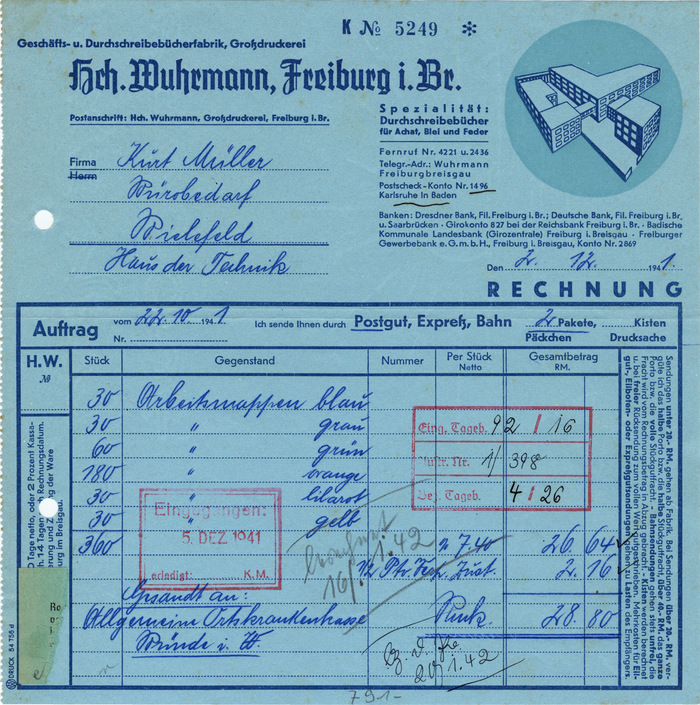 K № 5249 *
Geschäfts- u. Durchschreibebücherfabrik, Großdruckerei
Hch. Wuhrmann, Freiburg i. Br.
Postanschrift: Hch. Wuhrmann, Großdruckerei, Freiburg i. Br.
Spezialität:
Durchschreibebücher
für Achat, Blei und Feder
Fernruf Nr. 4221 u. 2436
Telegr.-Adr.: Wuhrmann
Freiburgbreisgau
Postscheck-Konto Nr. 1496
Karlsruhe in Baden
Firma Kurt Müller
Herrn
Bürobedarf
Bielefeld
Haus der Technik
Banken: Dresdner Bank, Fil. Freiburg i. Br.; Deutsche Bank, Fil. Freiburg i. Br.
u. Saarbrücken · Girokonto 827 bei der Reichsbank Freiburg i. Br. · Badische
Kommunale Landesbank (Girozentrale) Freiburg i. Breisgau · Freiburger
Gewerbebank e. G. m. b. H., Freiburg i. Breisgau, Konto Nr. 2869
Den 2. 12. 1941.
RECHNUNG
Auftrag vom 22.10. 1941
Nr.
Ich sende Ihnen durch Postgut, Expreß, Bahn 2 Pakete, Kisten
Päckchen Drucksache
H.W. №
Stück Gegenstand Nummer Per Stück Netto Gesamtbetrag RM.
30 Arbeitsmappen blau
30 " grau
60 " grün
180 " orange
30 " lilarot
30 " gelb
360 % 7.40 26.64
2.16
Gesandt an:
Allgemeine Ortskrankenkasse 28.80
Bünde i. W.
Eing. Tageb. 92 / 16
1/ 398
Tageb. 4 / 26
Eingegangen:
5. DEZ. 1941
erledigt: K.M.
16/1.42
20/1.42
791-
Sendungen unter 20.- RM. gehen ab Fabrik. Bei Sendungen über 20.- RM. ver-
güte ich das halbe Porto bzw. die halbe Stückgutfracht, über 40.- RM. das ganze
Porto bzw. die volle Stückgutfracht. · Bahnsendungen gehen stets unfrei, die
Fracht wird vom Rechnungsbetrag in Abzug gebracht. · Kisten werden berechnet
u. bei freier Rücksendung zum vollen Wert gutgeschrieben. Mehrkosten für Eil-
gut-, Eilboten- oder Expreßgutsendungen gehen zu Lasten des Empfängers.
DRUCK 54 758 d